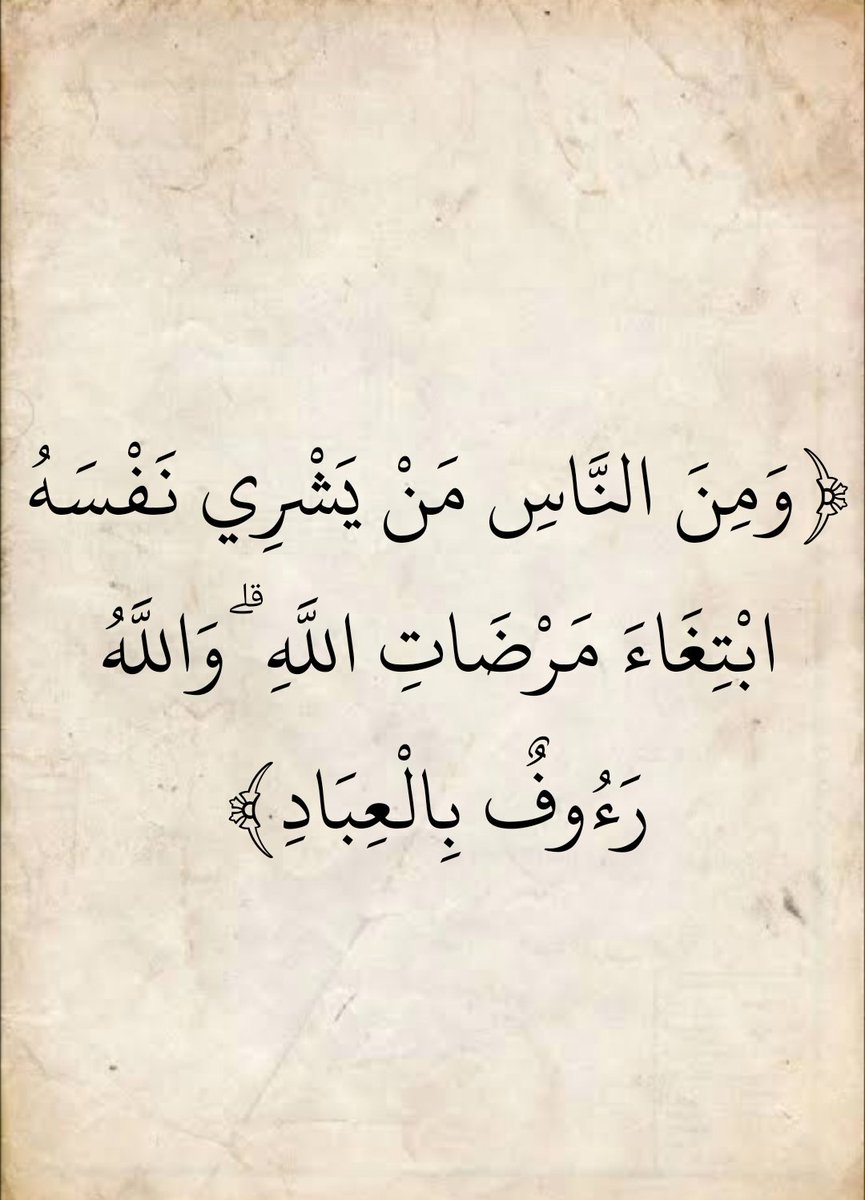 ﴿وَمِنَ النَّاسِ مَنْ يَشْرِي نَفْسَهُ
ابْتِغَاءَ مَرْضَاتِ اللَّهِ ۗ وَاللَّهُ
رَءُوفٌ بِالْعِبَادِ﴾